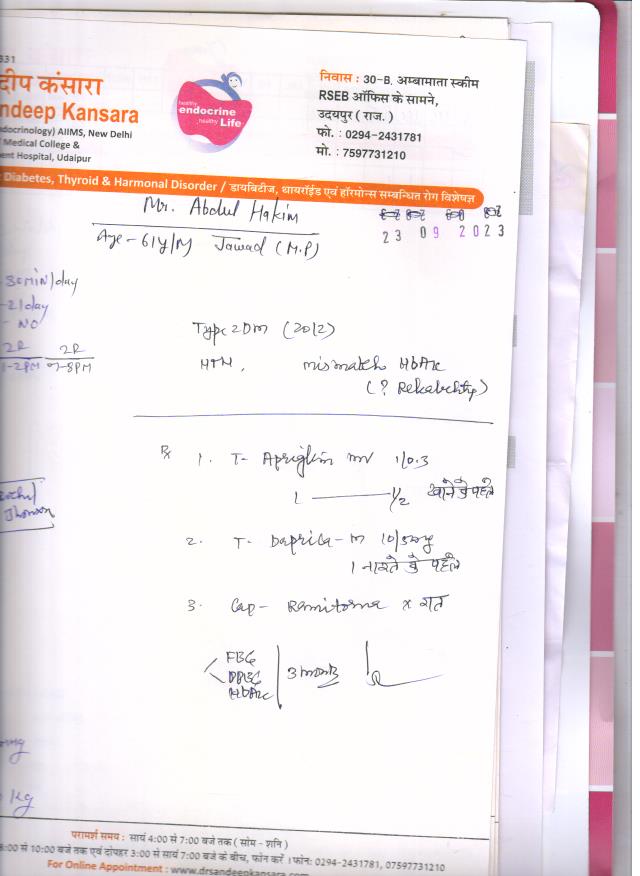 331
दीप कंसारा
ndeep Kansara
ndocrinology) AIIMS, New Delhi
Medical College &
ent Hospital, Udaipur
healthy
endocrine
healthy Life
निवास : 30-B, अम्बामाता स्कीम
RSEB ऑफिस के सामने,
उदयपुर ( राज. )
फो. : 0294-2431781
मो. : 7597731210
Diabetes, Thyroid & Harmonal Disorder / डायबिटीज, थायरॉईड एवं हॉरमोन्स सम्बन्धित रोग विशेषज्ञ
Mr. Abdul Hakim
Age - 61y/M Jawad (M.P)
23 09 2023
30min/day
-21day
- NO
2R 2R
1-2PM 7-8PM
Type 2 DM (2012)
HTN, mismatch HbA1c
(? Reliability)
Rx 1. T- 1/0.3
1 1/2 खाने से पहले
2. T. - m 10/500mg
1 नाश्ते से पहले
3. Cap- x रात
FBG
PPBG
HbA1c
3 month
mg
kg
परामर्श समय : सायं 4:00 से 7:00 बजे तक ( सोम - शनि )
8:00 से 10:00 बजे तक एवं दोपहर 3:00 से सायं 7:00 बजे के बीच, फोन करें । फोन: 0294-2431781, 07597731210
For Online Appointment : www.drsandeepkansara.com